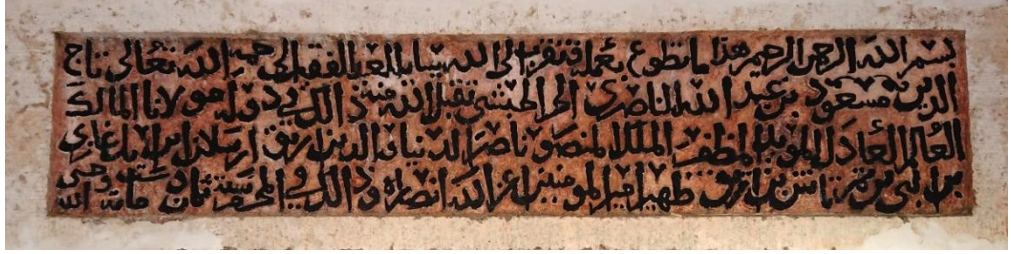 بسم الله الرحمن الرحيم هذا ما تطوع بعمله وتقرب الى الله ببنائه العبد الفقير الى رحمة الله تعالى تاج
الدين مسعود بن عبد الله الناصري الحبشي تقبل الله منه وذالك في دولة مولانا المالك
العالم العادل المؤيد المظفر الملك المنصور ناصر الدنيا والدين ارتق ارسلان بن ايلغازي
بن البي بن تمرتاش بن ارتق ظهير امير المومنين اعز الله انصاره وذالك في المحرم سنة ثمان